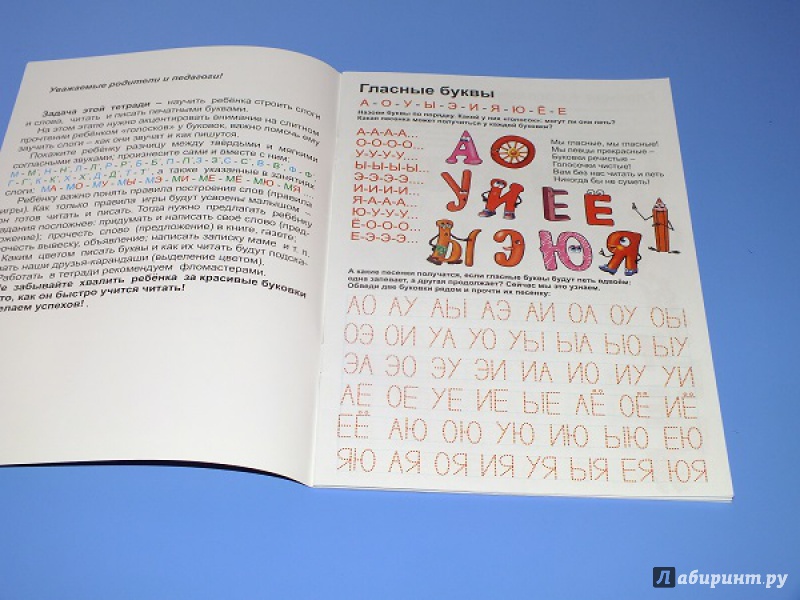 Уважаемые родители и педагоги!
Задача этой тетради – научить ребёнка строить слоги
и слова, читать и писать печатными буквами.
На этом этапе нужно акцентировать внимание на слитном
прочтении ребёнком «голосков» у буковок, важно помочь ему
заучить слоги – как они звучат и как пишутся.
Покажите ребёнку разницу между твёрдыми и мягкими
согласными звуками; произнесите сами и вместе с ним:
М-М', Н-Н', Л-Л', Р-Р', Б-Б', П-П', З-З', С-С', В-В', Ф-Ф'
Г-Г', К-К', Х-Х', Д-Д', Т-Т', а также указанные в занятиях
слоги: МА-МО-МУ-МЫ-МЭ-МИ-МЕ-МЁ-МЮ-МЯ
Ребёнку важно понять правила построения слов (правила
игры). Как только правила игры будут усвоены малышом –
он готов читать и писать. Тогда нужно предлагать ребёнку
задания посложнее: придумать и написать своё слово (пред-
ложение); прочесть слово (предложение) в книге, газете;
прочесть вывеску, объявление; написать записку маме и т. п.
Каким цветом писать буквы и как их читать будут подска-
зывать наши друзья-карандаши (выделение цветом).
Работать в тетради рекомендуем фломастерами.
Не забывайте хвалить ребёнка за красивые буковки
то, как он быстро учится читать!
Желаем успехов!
Гласные буквы
А - О - У - Ы - Э - И - Я - Ю - Ё - Е
Назови буквы по порядку. Какой у них «голосок»: могут ли они петь?
Какая песенка может получиться у каждой буковки?
А-А-А-А...
О-О-О-О...
У-У-У-У...
Ы-Ы-Ы-Ы...
Э-Э-Э-Э...
И-И-И-И...
Я-А-А-А...
Ю-У-У-У...
Ё-О-О-О...
Е-Э-Э-Э...
А О
У И Е Ё
Ы Э Ю Я
Мы гласные, мы гласные!
Мы певцы прекрасные –
Буковки речистые –
Голосочки чистые!
Вам без нас читать и петь
Никогда бы не суметь!
А какие песенки получатся, если гласные буквы будут петь вдвоём:
одна запевает, а другая продолжает? Сейчас мы это узнаем.
Обведи две буковки рядом и прочти их песенку:
АО АУ АЫ АЭ АИ ОА ОУ ОЫ
ОЭ ОИ УА УО УЫ ЫА ЫО ЫУ
ЭА ЭО ЭУ ЭИ ИА ИО ИУ УИ
АЕ ОЕ УЕ ИЕ ЫЕ АЁ ОЁ ИЁ
ЕЁ АЮ ОЮ УЮ ИЮ ЫЮ ЕЮ
ЯЮ АЯ ОЯ ИЯ УЯ ЫЯ ЕЯ ЮЯ
Лабиринт.ру